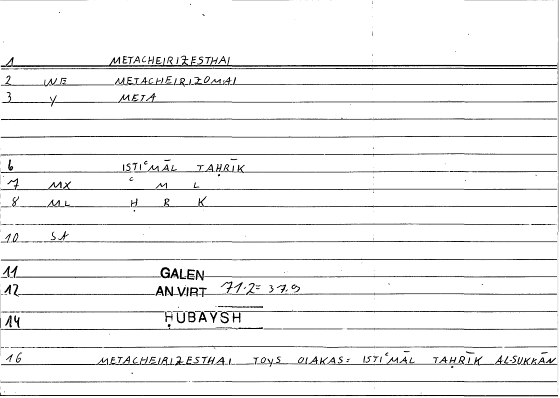 1 METACHEIRIZESTHAI
2 WE METACHEIRIZOMAI
3 Y META
6 ISTIᶜMĀL TAḤRĪK
7 MX ᶜ M L
8 ML Ḥ R K
10 SA
11 GALEN
12 AN VIRT 71.2= 37.9
14 ḤUBAYSH
16 METACHEIRIZESTHAI TOYS OIAKAS= ISTIᶜMĀL TAḤRĪK AL-SUKKĀN